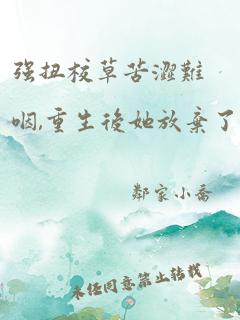 强扭校草苦澀難
咽,重生後她放棄了
鄰家小喬
未经同意禁止转载